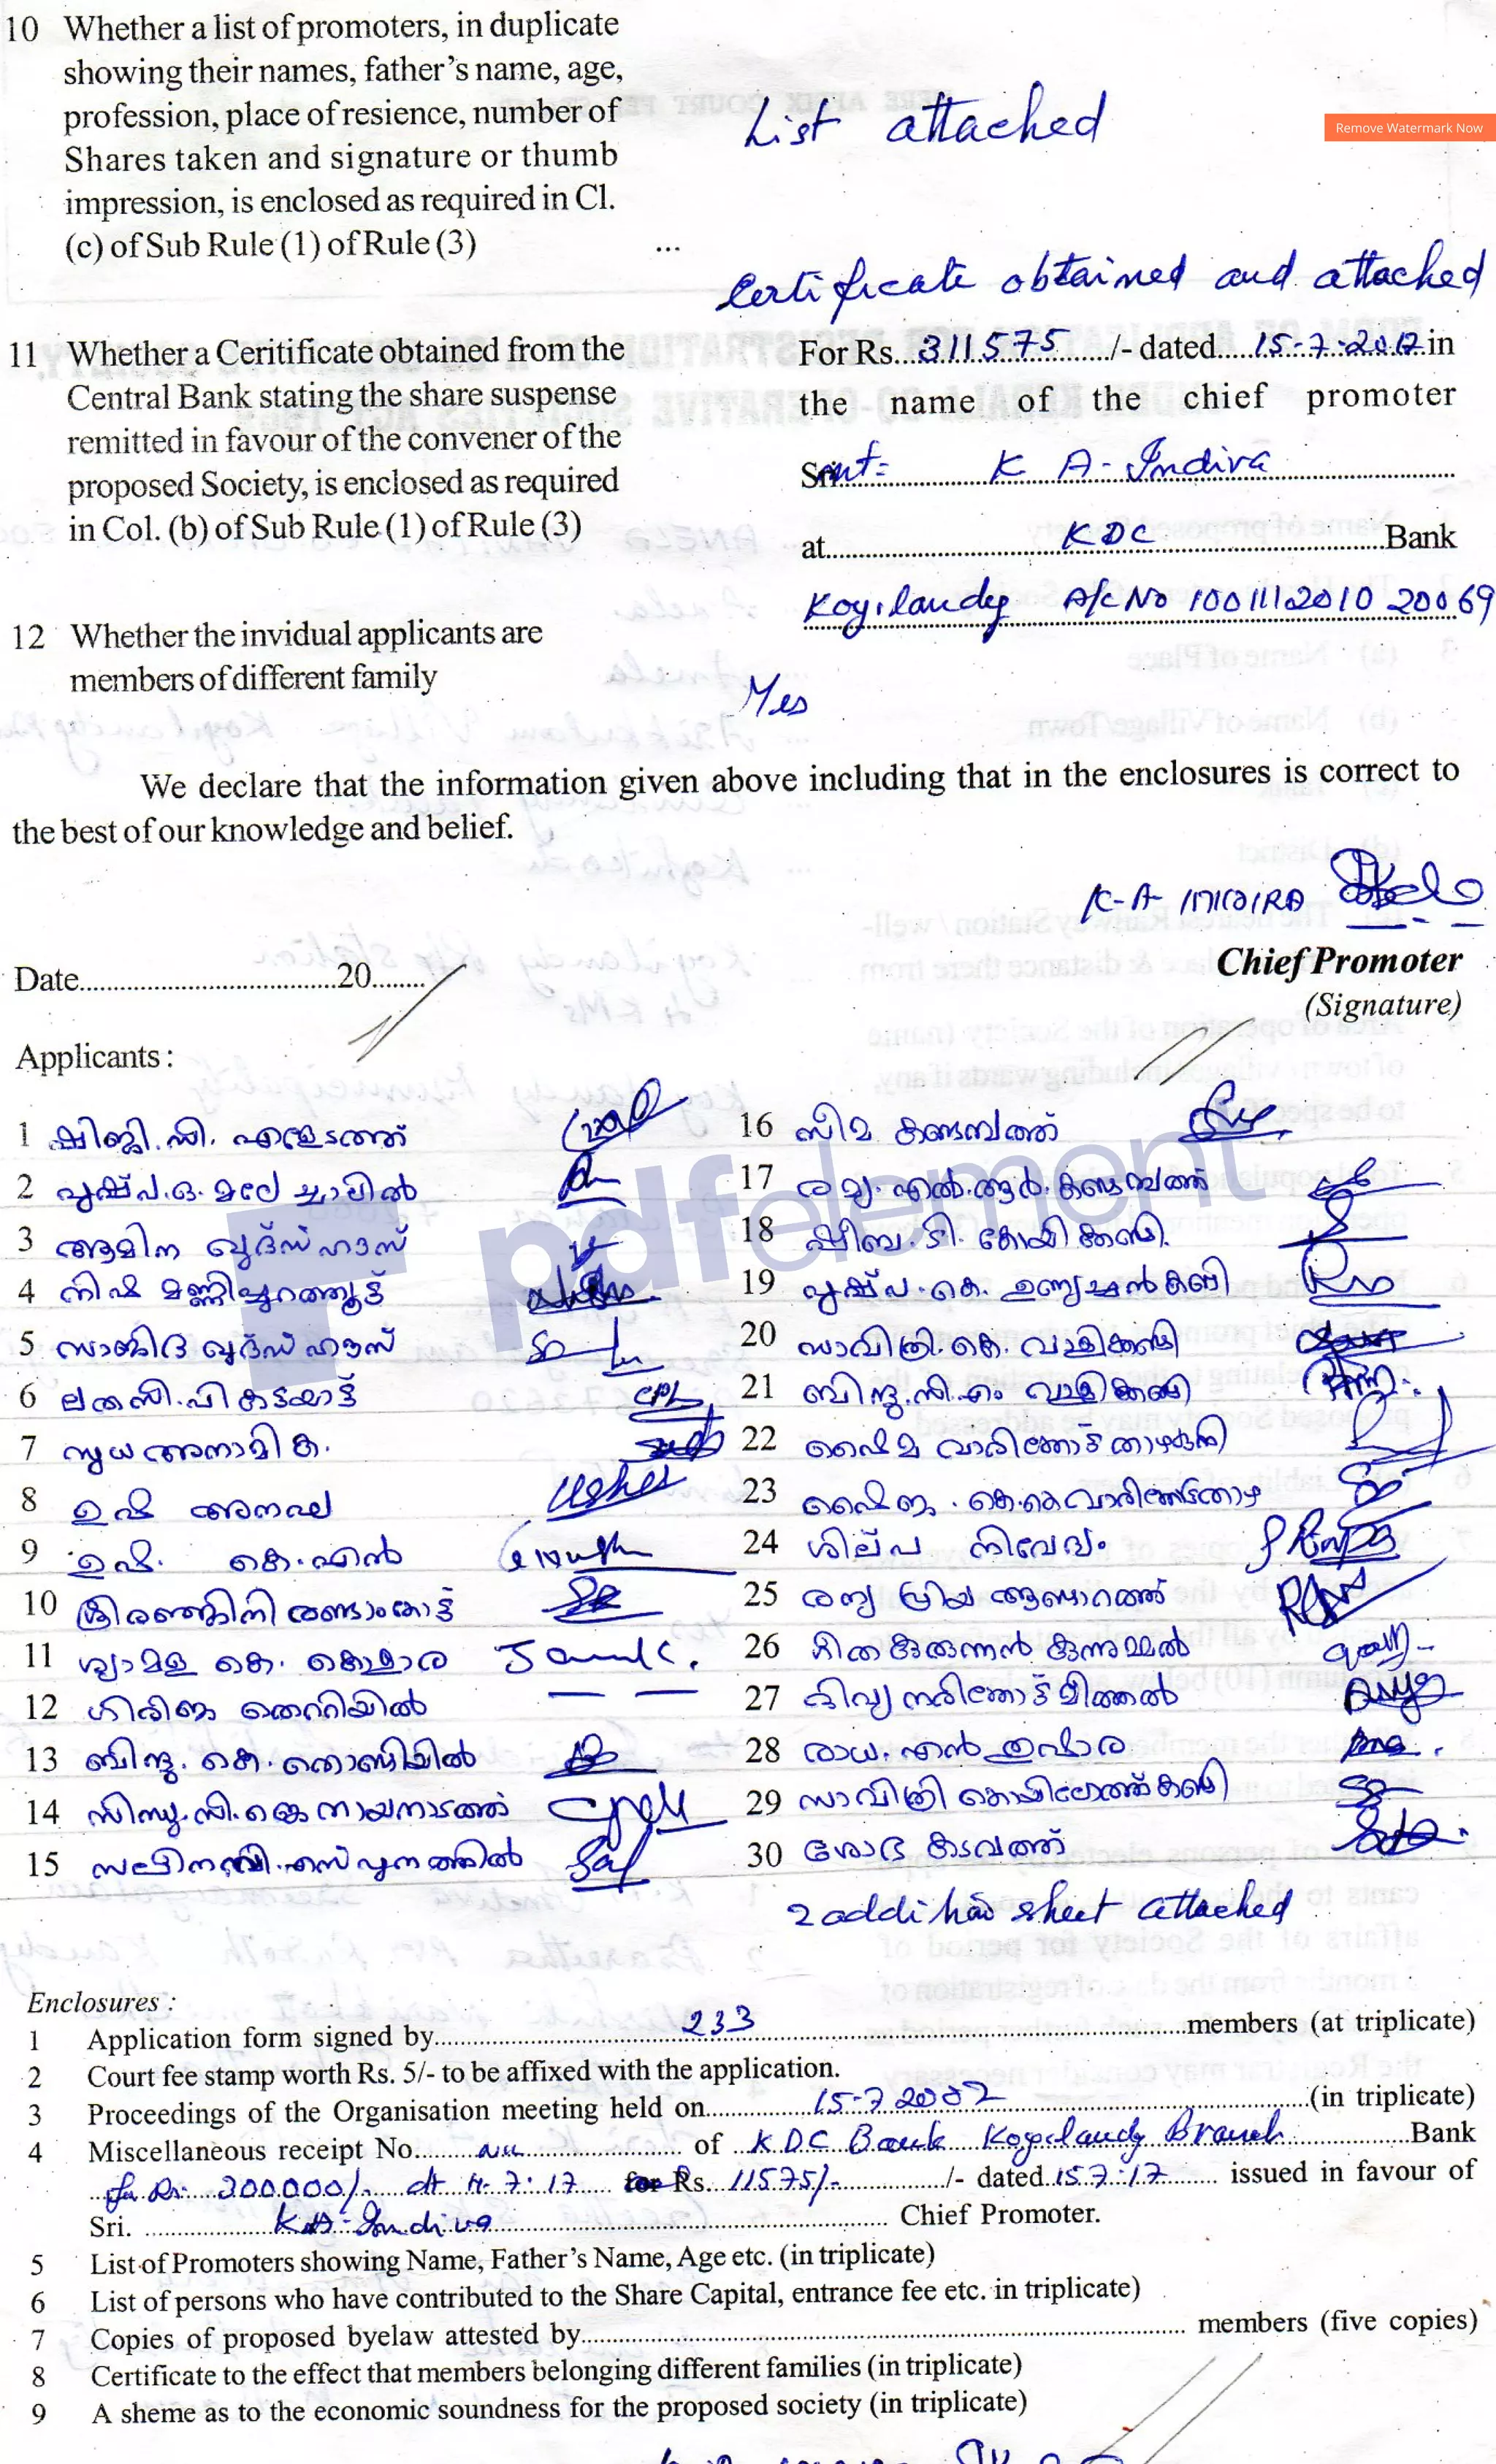 10 Whether a list of promoters, in duplicate
showing their names, father's name, age,
profession, place of resience, number of
Shares taken and signature or thumb
impression, is enclosed as required in Cl.
(c) of Sub Rule (1) of Rule (3) ...
List attached
Remove Watermark Now
Certificate obtained and attached
11 Whether a Ceritificate obtained from the
Central Bank stating the share suspense
remitted in favour of the convener of the
proposed Society, is enclosed as required
in Col. (b) of Sub Rule (1) of Rule (3)
For Rs...311575.../- dated....15-7-2017.in
the name of the chief promoter
Smt= K A-Indira
at........KDC........Bank
Koyilandy A/c No 100111201020069
12 Whether the invidual applicants are
members of different family
Yes
We declare that the information given above including that in the enclosures is correct to
the best of our knowledge and belief.
K-A INDIRA
Chief Promoter
(Signature)
Date........20........
Applicants :
1 ഷിജി.സി. എളേടത്ത്
2 പുഷ്പ.ഒ. മലേ ച്ചാലിൽ
3 ആമിന ഖുദ്സ് ഹൗസ്
4 നിഷ മണ്ണിച്ചുറത്തൂട്ട്
5 സാജിദ ഖുദ്സ് ഹൗസ്
6 ലത സി.പി കടയാട്ട് CPL
7 സുധ അനാമിക.
8 ഉഷ അനഘ Usher
9 ഉഷ. കെ.എൻ
10 ശ്രീരഞ്ജിനി രണ്ടാംകോട്ട്
11 ശ്യാമള കെ. കൊളാര
12 ഗിരിജ തെററിയിൽ — —
13 ബിന്ദു. കെ. തൊണ്ടിയിൽ
14 സിന്ധു.സി.കെ നായനാടത്ത്
15 സലീന വി.എസ് പുനത്തിൽ
16 സീമ കണ്ടമ്പത്ത്
17 രമ്യ.എൽ.ആർ.കണ്ടമ്പത്ത്
18 ഷീബ.ടി. കോയിക്കണ്ടി.
19 പുഷ്പ.കെ. ഉണ്യച്ചൻകണ്ടി
20 സാവിത്രി.കെ. വാളിക്കണ്ടി
21 ബിന്ദു.സി.എം വാളിക്കണ്ടി
22 ഷൈമ വാരിത്തോട്ട്താഴകുനി
23 ഷൈജ. കെ.കെ വാരിത്തോട്ടതാഴ
24 ശില്പ നിവേദ്യം
25 രമ്യ പ്രിയ ആണ്ടാറത്ത്
26 ഗീത കുരുന്നൻ കുന്നുമ്മൽ
27 ദിവ്യ നരിത്തോട്ട്മീത്തൽ
28 രാധ.എൻ തുഷാര
29 സാവിത്രി കൊഴിലോത്ത്കണ്ടി
30 ശോഭ കടവത്ത്
pdfelement
2 addition sheet attached
Enclosures :
1 Application form signed by........233........members (at triplicate)
2 Court fee stamp worth Rs. 5/- to be affixed with the application.
3 Proceedings of the Organisation meeting held on........15-7 2002........(in triplicate)
4 Miscellaneous receipt No.....nil..... of ..KDC Bank Koyilandy Branch.....Bank
for Rs: 300000/- dt 11-7-17 for Rs. 11575/- ...../- dated.15.7.17..... issued in favour of
Sri. ........K.A-Indira........ Chief Promoter.
5 List of Promoters showing Name, Father's Name, Age etc. (in triplicate)
6 List of persons who have contributed to the Share Capital, entrance fee etc. in triplicate)
7 Copies of proposed byelaw attested by........ members (five copies)
8 Certificate to the effect that members belonging different families (in triplicate)
9 A sheme as to the economic soundness for the proposed society (in triplicate)